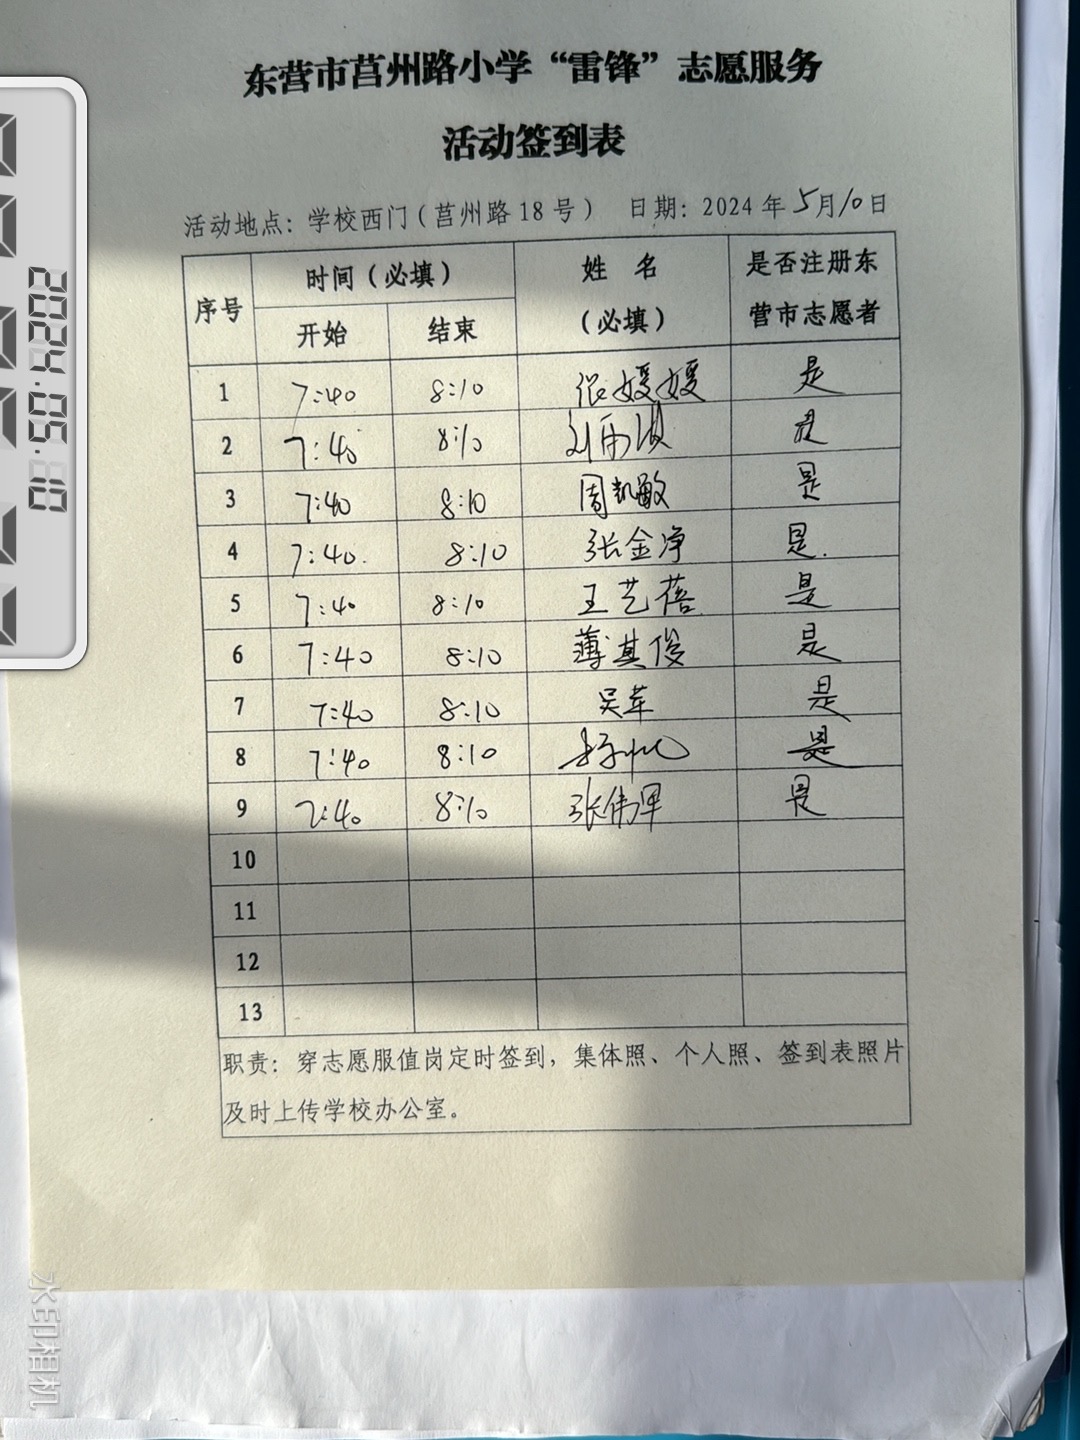 东营市莒州路小学“雷锋”志愿服务
活动签到表
活动地点：学校西门（莒州路18号） 日期：2024年5月10日
序号 时间（必填） 姓 名（必填） 是否注册东营市志愿者
开始 结束
1 7:40 8:10 张媛媛 是
2 7:40 8:10 刘 是
3 7:40 8:10 周凯敏 是
4 7:40. 8:10 张金净 是.
5 7:40 8:10 王艺蓓 是
6 7:40 8:10 薄其俊 是
7 7:40 8:10 吴苹 是
8 7:40 8:10 是
9 7:40 8:10 张伟 是
10
11
12
13
职责：穿志愿服值岗定时签到，集体照、个人照、签到表照片
及时上传学校办公室。
2024.05.10
水印相机